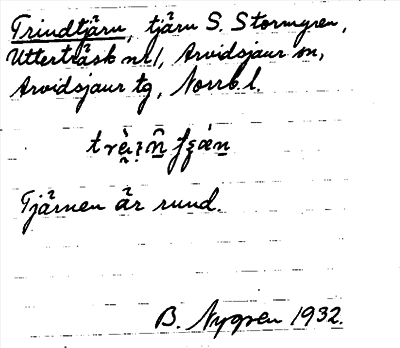 Trindtjärn, tjärn S. Stormyren,
Utterträsk nr 1, Arvidsjaur sn,
Arvidsjaur tg, Norrb. l.
Tjärnen är rund.
B. Nygren 1932.